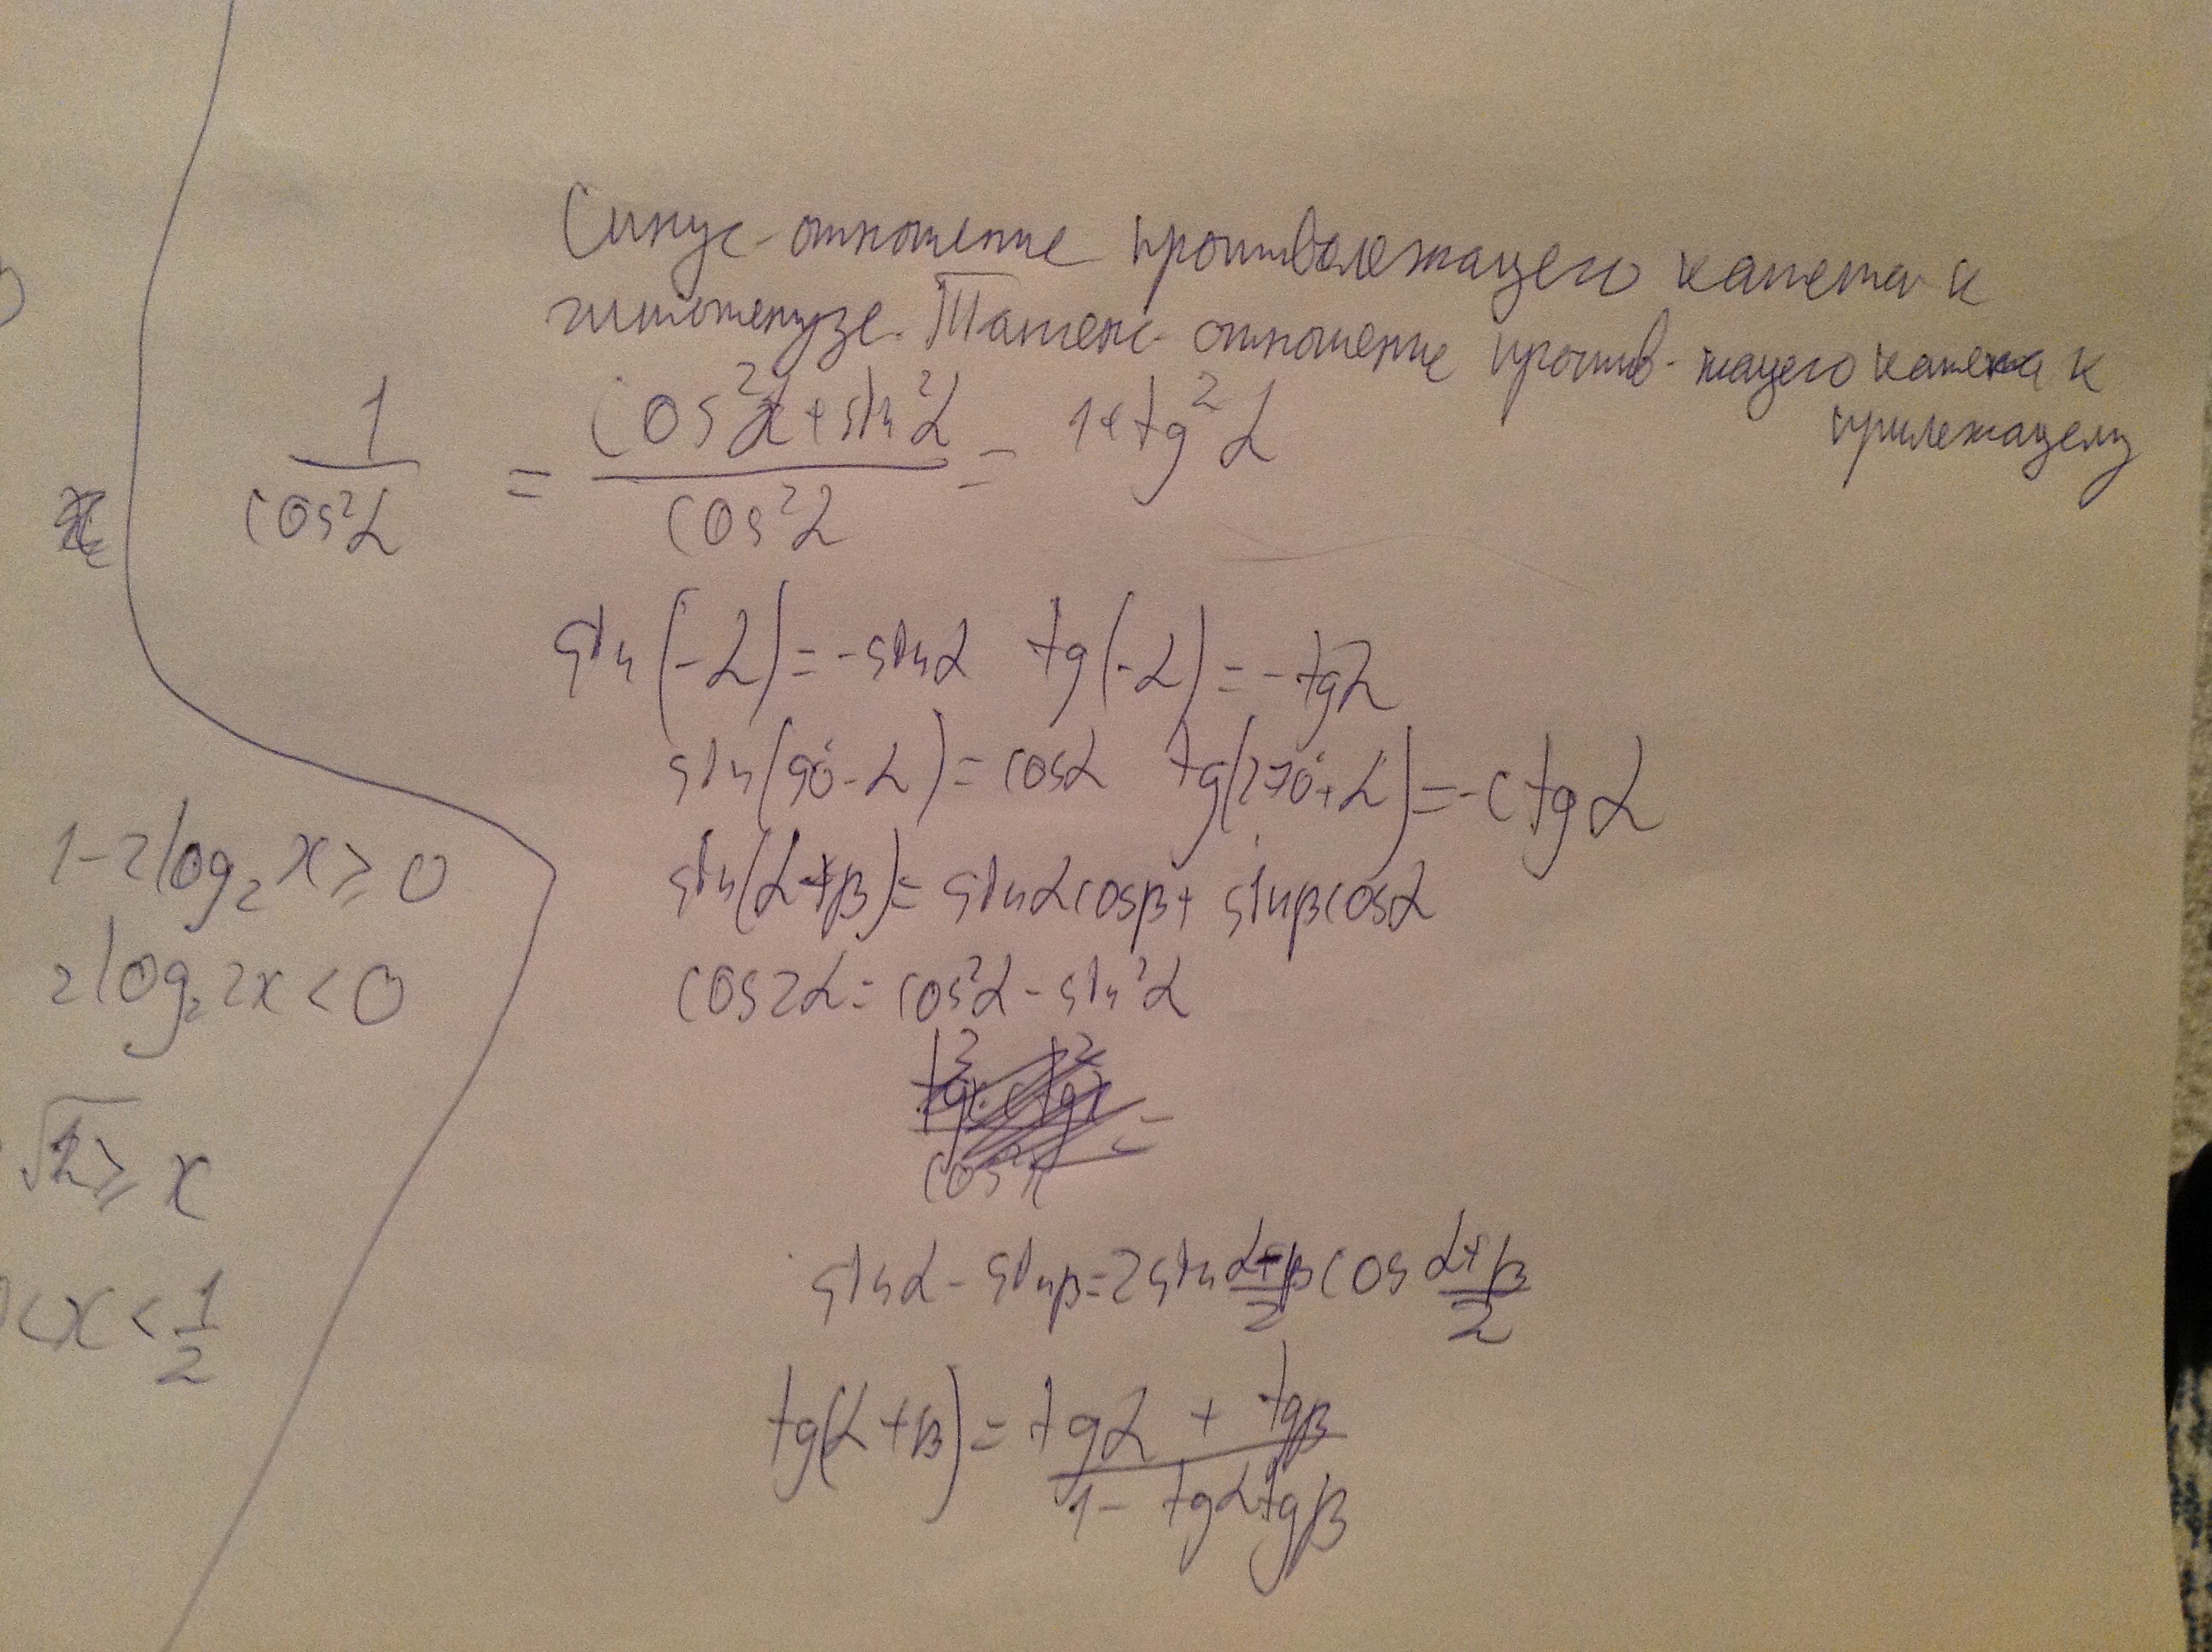 Синус - отношение противолежащего катета к
гипотенузе. Тангенс - отношение против-жащего катета к
прилежащему
1/cos²α = (cos²α + sin²α)/cos²α = 1 + tg²α
sin(-α) = -sinα tg(-α) = -tgα
sin(90°-α) = cosα tg(270°+α) = -ctgα
sin(α+β) = sinαcosβ + sinβcosα
cos2α = cos²α - sin²α
sinα - sinβ = 2sin (α-β)/2 cos (α+β)/2
tg(α+β) = (tgα + tgβ)/(1 - tgαtgβ)
1-2log₂x ≥ 0
2log₂2x < 0
√2 ≥ x
0 < x < 1/2